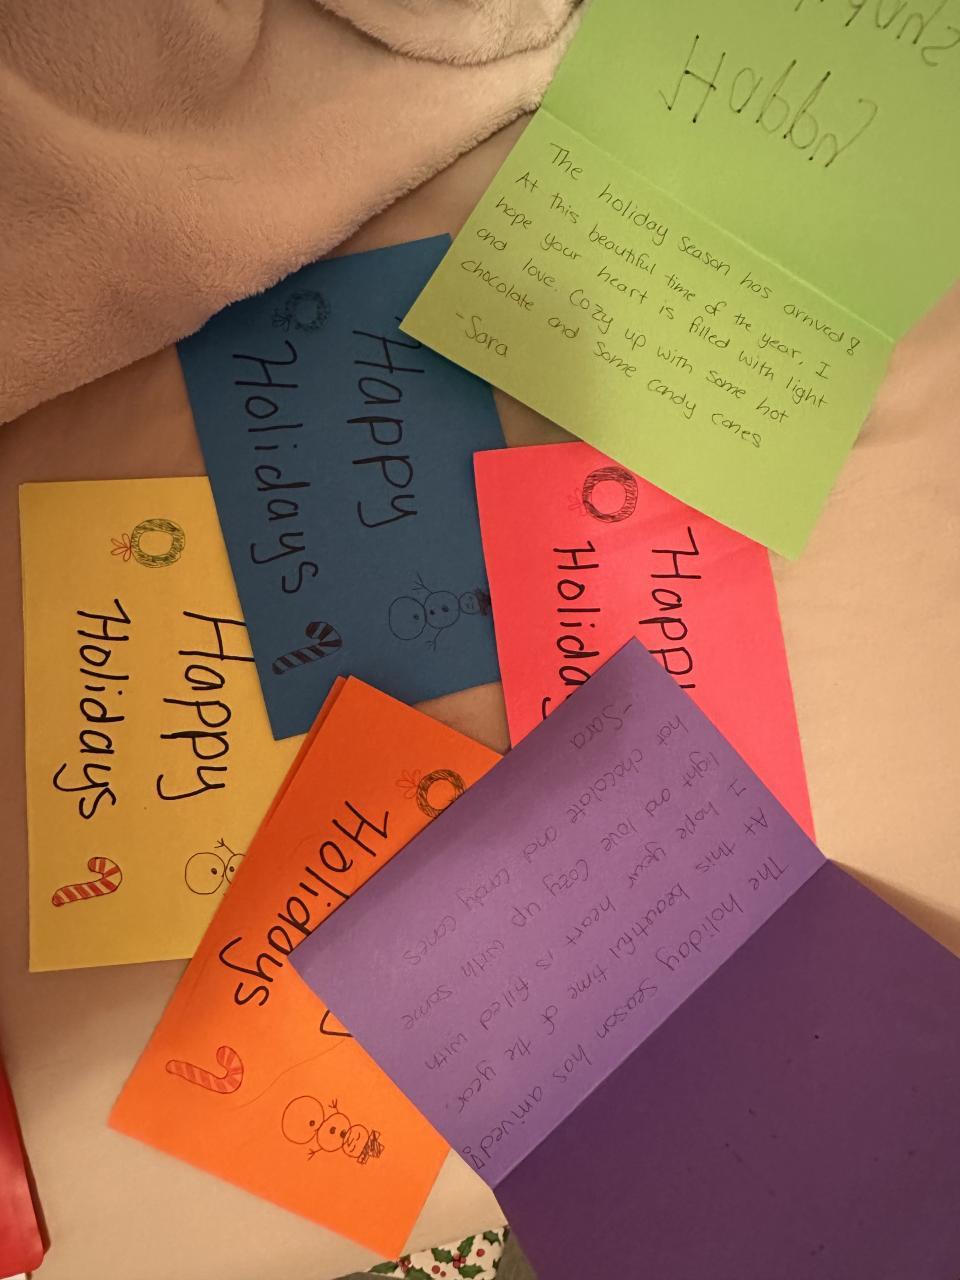 Happy
The holiday season has arrived!
At this beautiful time of the year, I
hope your heart is filled with light
and love. Cozy up with some hot
chocolate and some candy canes
-Sara
Happy
Holidays
Happy
Holidays
Happy
Holiday
Holidays
The holiday season has arrived!
At this beautiful time of the year.
I hope your heart is filled with
light and love cozy up with some
hot chocolate and candy canes
-Sara